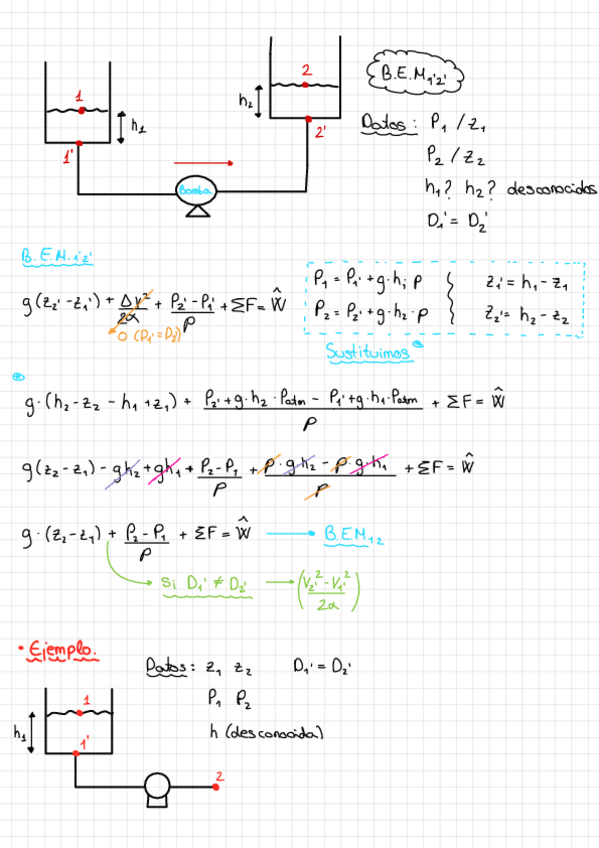 B.E.M1'2'
1
2
h1
h2
1'
2'
Bomba
Datos: P1 / z1
P2 / z2
h1? h2? desconocidos
D1' = D2'
B.E.M.1'2'
g(z2' - z1') + Δv²/2α + (P2' - P1')/ρ + ΣF = Ŵ
0 (D1' = D2')
P1 = P1' + g·h1·ρ
z1' = h1 - z1
P2 = P2' + g·h2·ρ
z2' = h2 - z2
Sustituimos
g·(h2 - z2 - h1 + z1) + (P2' + g·h2·Patm - P1' + g·h1·Patm)/ρ + ΣF = Ŵ
g(z2 - z1) - gh2 + gh1 + (P2 - P1)/ρ + (ρ·gh2 - ρ·g·h1)/ρ + ΣF = Ŵ
g·(z2 - z1) + (P2 - P1)/ρ + ΣF = Ŵ → B.E.M12
Si D1' ≠ D2' → ((V2'² - V1'²)/2α)
• Ejemplo.
Datos: z1 z2 D1' = D2'
P1 P2
h (desconocida)
1
h1
1'
2